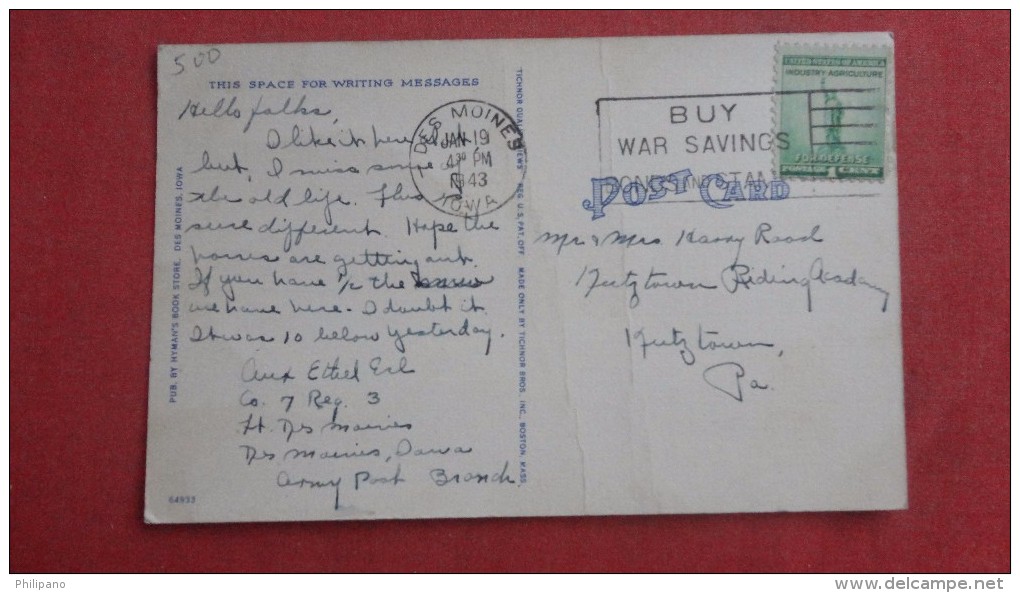 500
THIS SPACE FOR WRITING MESSAGES
Hello folks,
I like it here
but, I miss some of
the old life. This
sure different. Hope the
horses are getting out.
If you have 1/2 the
we have here. I doubt it.
It was 10 below yesterday.
Aux Ethel
Co. 7 Reg. 3
Ft. Des Moines
Des Moines, Iowa
Army Post Branch
64933
PUB. BY HYMAN'S BOOK STORE, DES MOINES, IOWA
TICHNOR QUALITY VIEWS REG. U.S. PAT. OFF. MADE ONLY BY TICHNOR BROS. INC., BOSTON, MASS.
DES MOINES
JAN 19
4 30 PM
1943
IOWA
BUY
WAR SAVINGS
BONDS AND STAMPS
UNITED STATES OF AMERICA
INDUSTRY AGRICULTURE
FOR DEFENSE
POSTAGE 1 CENT
POST CARD
Mr & Mrs Harry
Kutztown Riding Acadamy
Kutztown,
Pa.
Philipano
www.delcampe.net